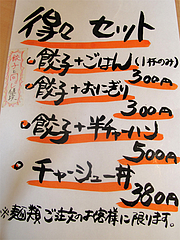 得々セット
・餃子+ごはん(1杯のみ)
300円
・餃子+おにぎり
300円
・餃子+半チャーハン
500円
・チャーシュー丼
380円
※麺類ご注文のお客様に限ります。